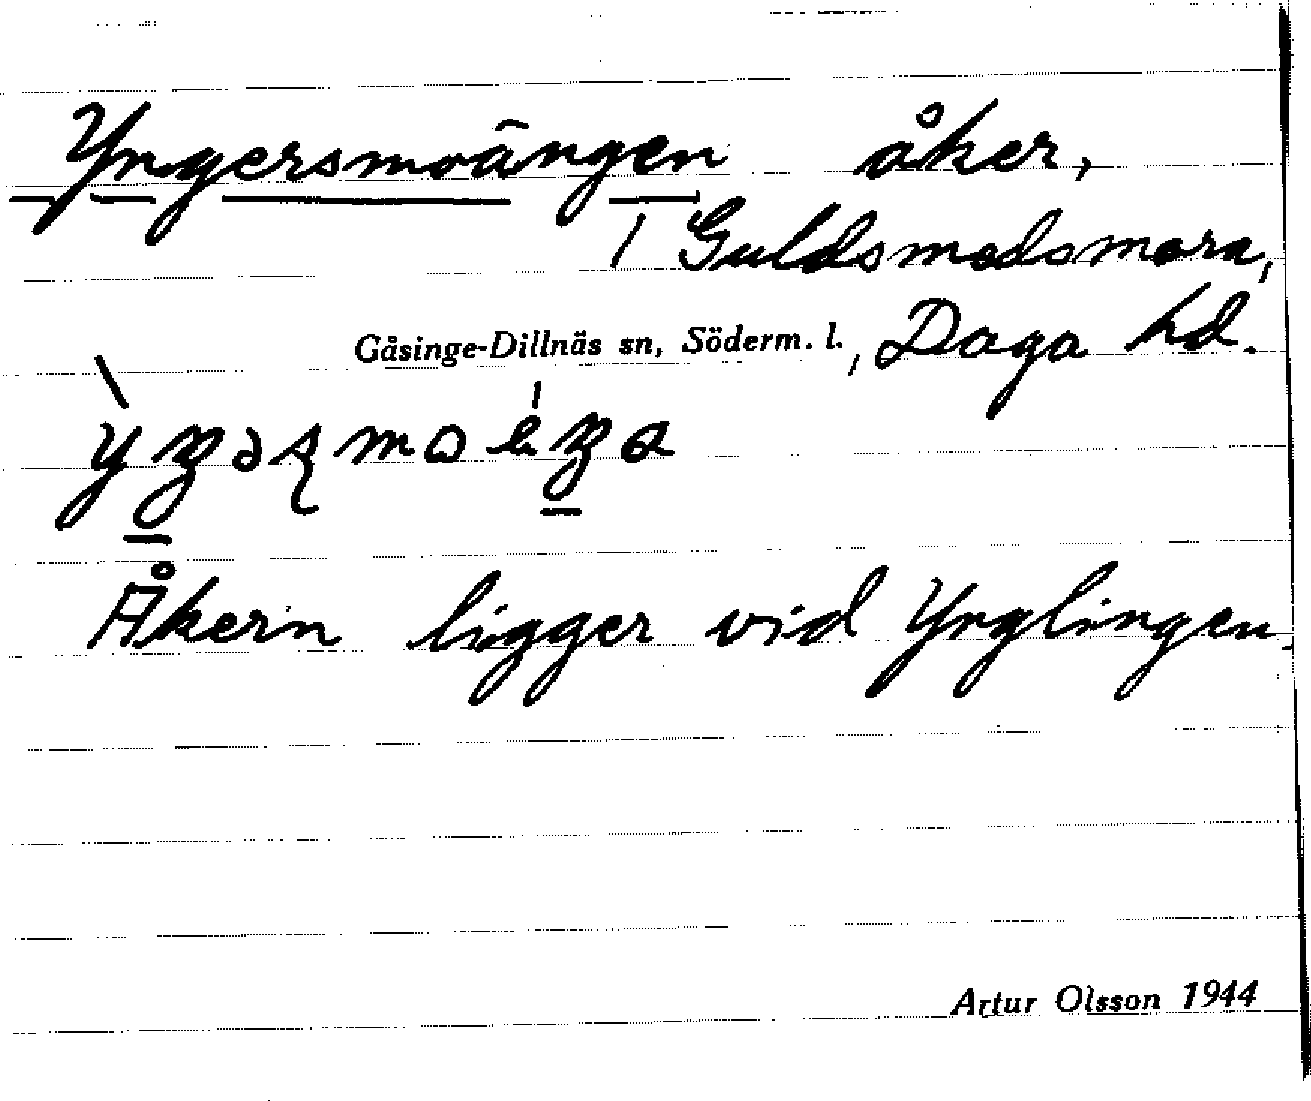 Yngersmoängen åker,
/ Guldsmedsmora,
Gåsinge-Dillnäs sn, Söderm. l., Daga hd.
Åkern ligger vid Ynglingen.
Artur Olsson 1944